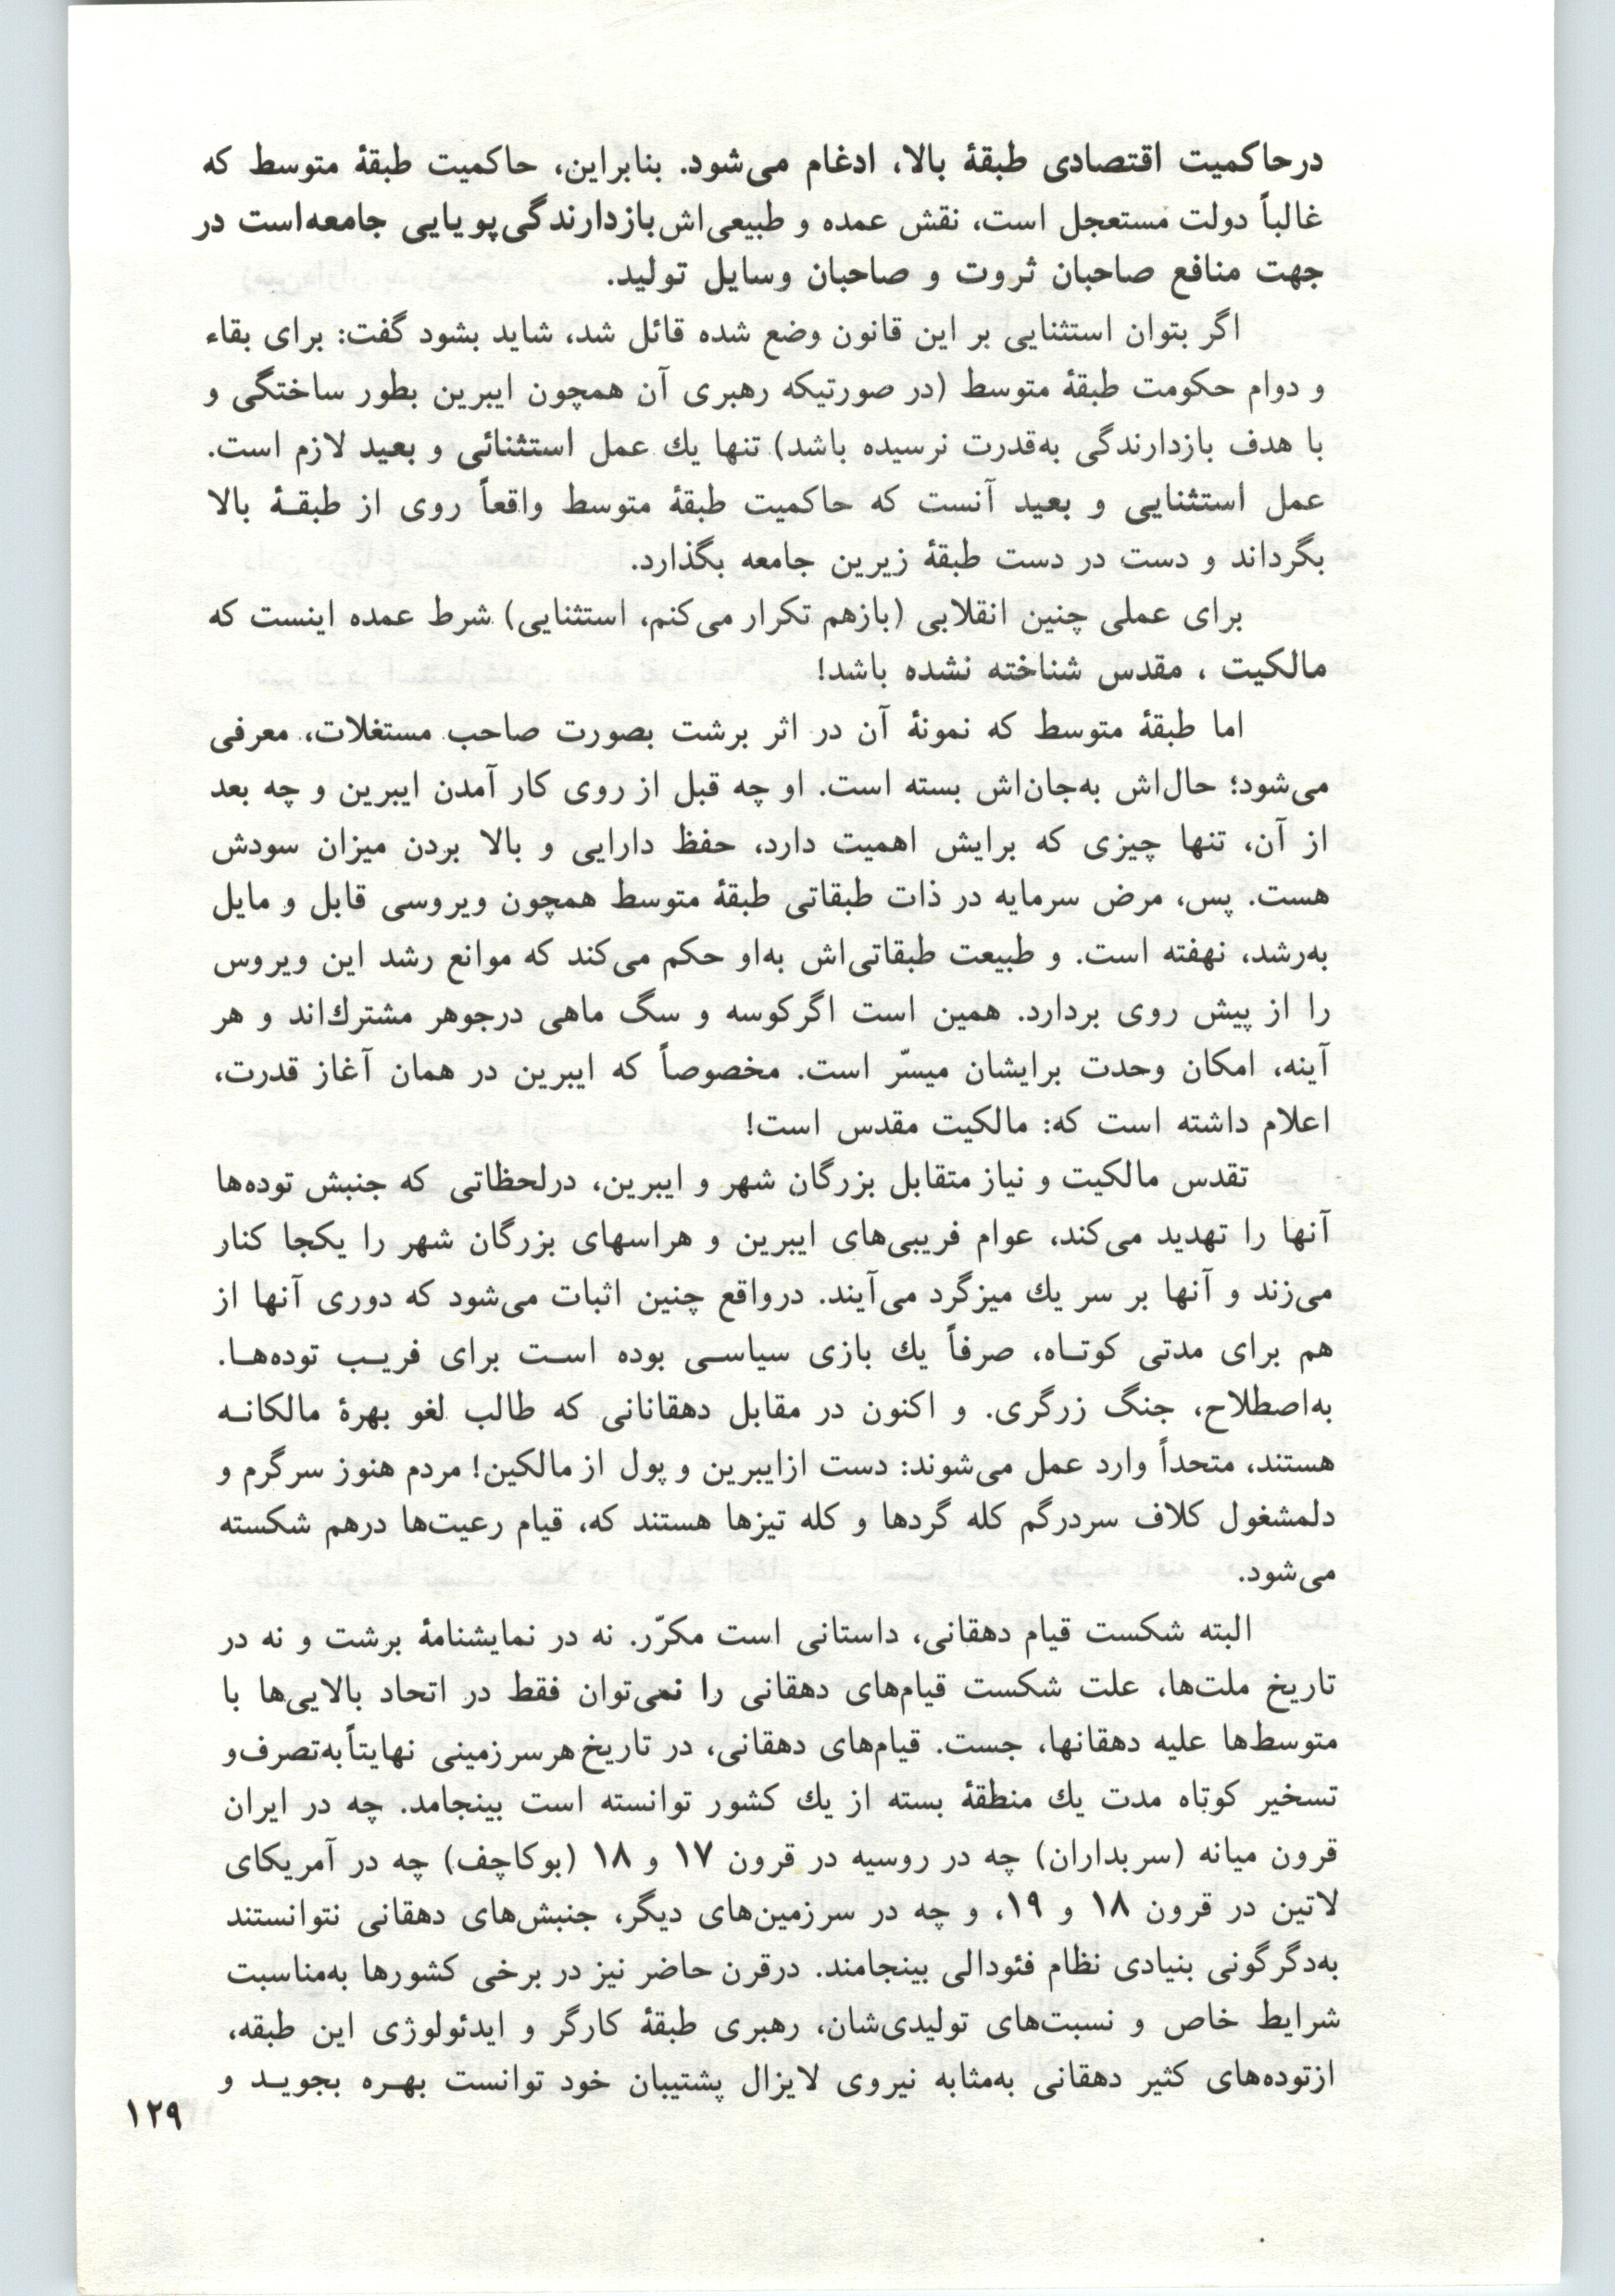 درحاکمیت اقتصادی طبقهٔ بالا، ادغام می‌شود. بنابراین، حاکمیت طبقهٔ متوسط که
غالباً دولت مستعجل است، نقش عمده و طبیعی‌اش بازدارندگی پویایی جامعه‌است در
جهت منافع صاحبان ثروت و صاحبان وسایل تولید.
اگر بتوان استثنایی بر این قانون وضع شده قائل شد، شاید بشود گفت: برای بقاء
و دوام حکومت طبقهٔ متوسط (در صورتیکه رهبری آن همچون ایبرین بطور ساختگی و
با هدف بازدارندگی به‌قدرت نرسیده باشد) تنها یك عمل استثنائی و بعید لازم است.
عمل استثنایی و بعید آنست که حاکمیت طبقهٔ متوسط واقعاً روی از طبقـهٔ بالا
بگرداند و دست در دست طبقهٔ زیرین جامعه بگذارد.
برای عملی چنین انقلابی (بازهم تکرار می‌کنم، استثنایی) شرط عمده اینست که
مالکیت ، مقدس شناخته نشده باشد!
اما طبقهٔ متوسط که نمونهٔ آن در اثر برشت بصورت صاحب مستغلات، معرفی
می‌شود؛ حال‌اش به‌جان‌اش بسته است. او چه قبل از روی کار آمدن ایبرین و چه بعد
از آن، تنها چیزی که برایش اهمیت دارد، حفظ دارایی و بالا بردن میزان سودش
هست. پس، مرض سرمایه در ذات طبقاتی طبقهٔ متوسط همچون ویروسی قابل و مایل
به‌رشد، نهفته است. و طبیعت طبقاتی‌اش به‌او حکم می‌کند که موانع رشد این ویروس
را از پیش روی بردارد. همین است اگرکوسه و سگ ماهی درجوهر مشترك‌اند و هر
آینه، امکان وحدت برایشان میسّر است. مخصوصاً که ایبرین در همان آغاز قدرت،
اعلام داشته است که: مالکیت مقدس است!
تقدس مالکیت و نیاز متقابل بزرگان شهر و ایبرین، درلحظاتی که جنبش توده‌ها
آنها را تهدید می‌کند، عوام فریبی‌های ایبرین و هراسهای بزرگان شهر را یکجا کنار
می‌زند و آنها بر سر یك میزگرد می‌آیند. درواقع چنین اثبات می‌شود که دوری آنها از
هم برای مدتی کوتـاه، صرفاً یك بازی سیاسـی بوده اسـت برای فریـب توده‌هـا.
به‌اصطلاح، جنگ زرگری. و اکنون در مقابل دهقانانی که طالب لغو بهرهٔ مالکانـه
هستند، متحداً وارد عمل می‌شوند: دست ازایبرین و پول از مالکین! مردم هنوز سرگرم و
دلمشغول کلاف سردرگم کله گردها و کله تیزها هستند که، قیام رعیت‌ها درهم شکسته
می‌شود.
البته شکست قیام دهقانی، داستانی است مکرّر. نه در نمایشنامهٔ برشت و نه در
تاریخ ملت‌ها، علت شکست قیام‌های دهقانی را نمی‌توان فقط در اتحاد بالایی‌ها با
متوسط‌ها علیه دهقانها، جست. قیام‌های دهقانی، در تاریخ هرسرزمینی نهایتاً به‌تصرف و
تسخیر کوتاه مدت یك منطقهٔ بسته از یك کشور توانسته است بینجامد. چه در ایران
قرون میانه (سربداران) چه در روسیه در قرون ۱۷ و ۱۸ (بوکاچف) چه در آمریکای
لاتین در قرون ۱۸ و ۱۹، و چه در سرزمین‌های دیگر، جنبش‌های دهقانی نتوانستند
به‌دگرگونی بنیادی نظام فئودالی بینجامند. درقرن حاضر نیز در برخی کشورها به‌مناسبت
شرایط خاص و نسبت‌های تولیدی‌شان، رهبری طبقهٔ کارگر و ایدئولوژی این طبقه،
ازتوده‌های کثیر دهقانی به‌مثابه نیروی لایزال پشتیبان خود توانست بهـره بجویـد و
۱۲۹